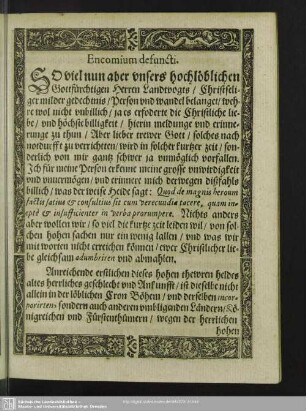 Encomium defuncti.
SO viel nun aber vnsers hochlöblichen
Gottfürchtigen Herren Landvogts / Christseli-
ger milder gedechtnis / Person vnd wandel belanget / weh-
re wol nicht vnbillich / ja es erforderte die Christliche lie-
be / vnd höchste billigkeit / hierin meldunge vnd erinne-
runge zu thun / Aber lieber trewer Gott / solches nach
notdurfft zu verrichten / wird in solcher kurtzer zeit / son-
derlich von mir gantz schwer ja vnmöglich vorfallen.
Ich für meine Person erkenne meine grosse vnwirdigkeit
vnd vnvermögen / vnd erinnere mich derwegen dißfahls
billich / was der weise Heide sagt: Quod de magnis heroum
factis satius & consultius sit cum verecundia tacere, quam in-
eptè & insufficienter in verba prorumpere. Nichts anders
aber wollen wir / so viel die kurtze zeit leiden wil / von sol-
chen hohen sachen nur ein wenig lallen / vnd was wir
mit worten nicht erreichen können / ewer Christlicher lie-
be gleichsam adumbriren vnd abmahlen.
Anreichende erstlichen dieses hohen thewren heldes
altes herrliches geschlecht vnd Ankunfft / ist dieselbe nicht
allein in der löblichen Cron Böhem / vnd derselben incor-
porirten / sondern auch anderen vmbliganden Ländern / Kö-
nigreichen vnd Fürstenthümern / wegen der herrlichen
hohen